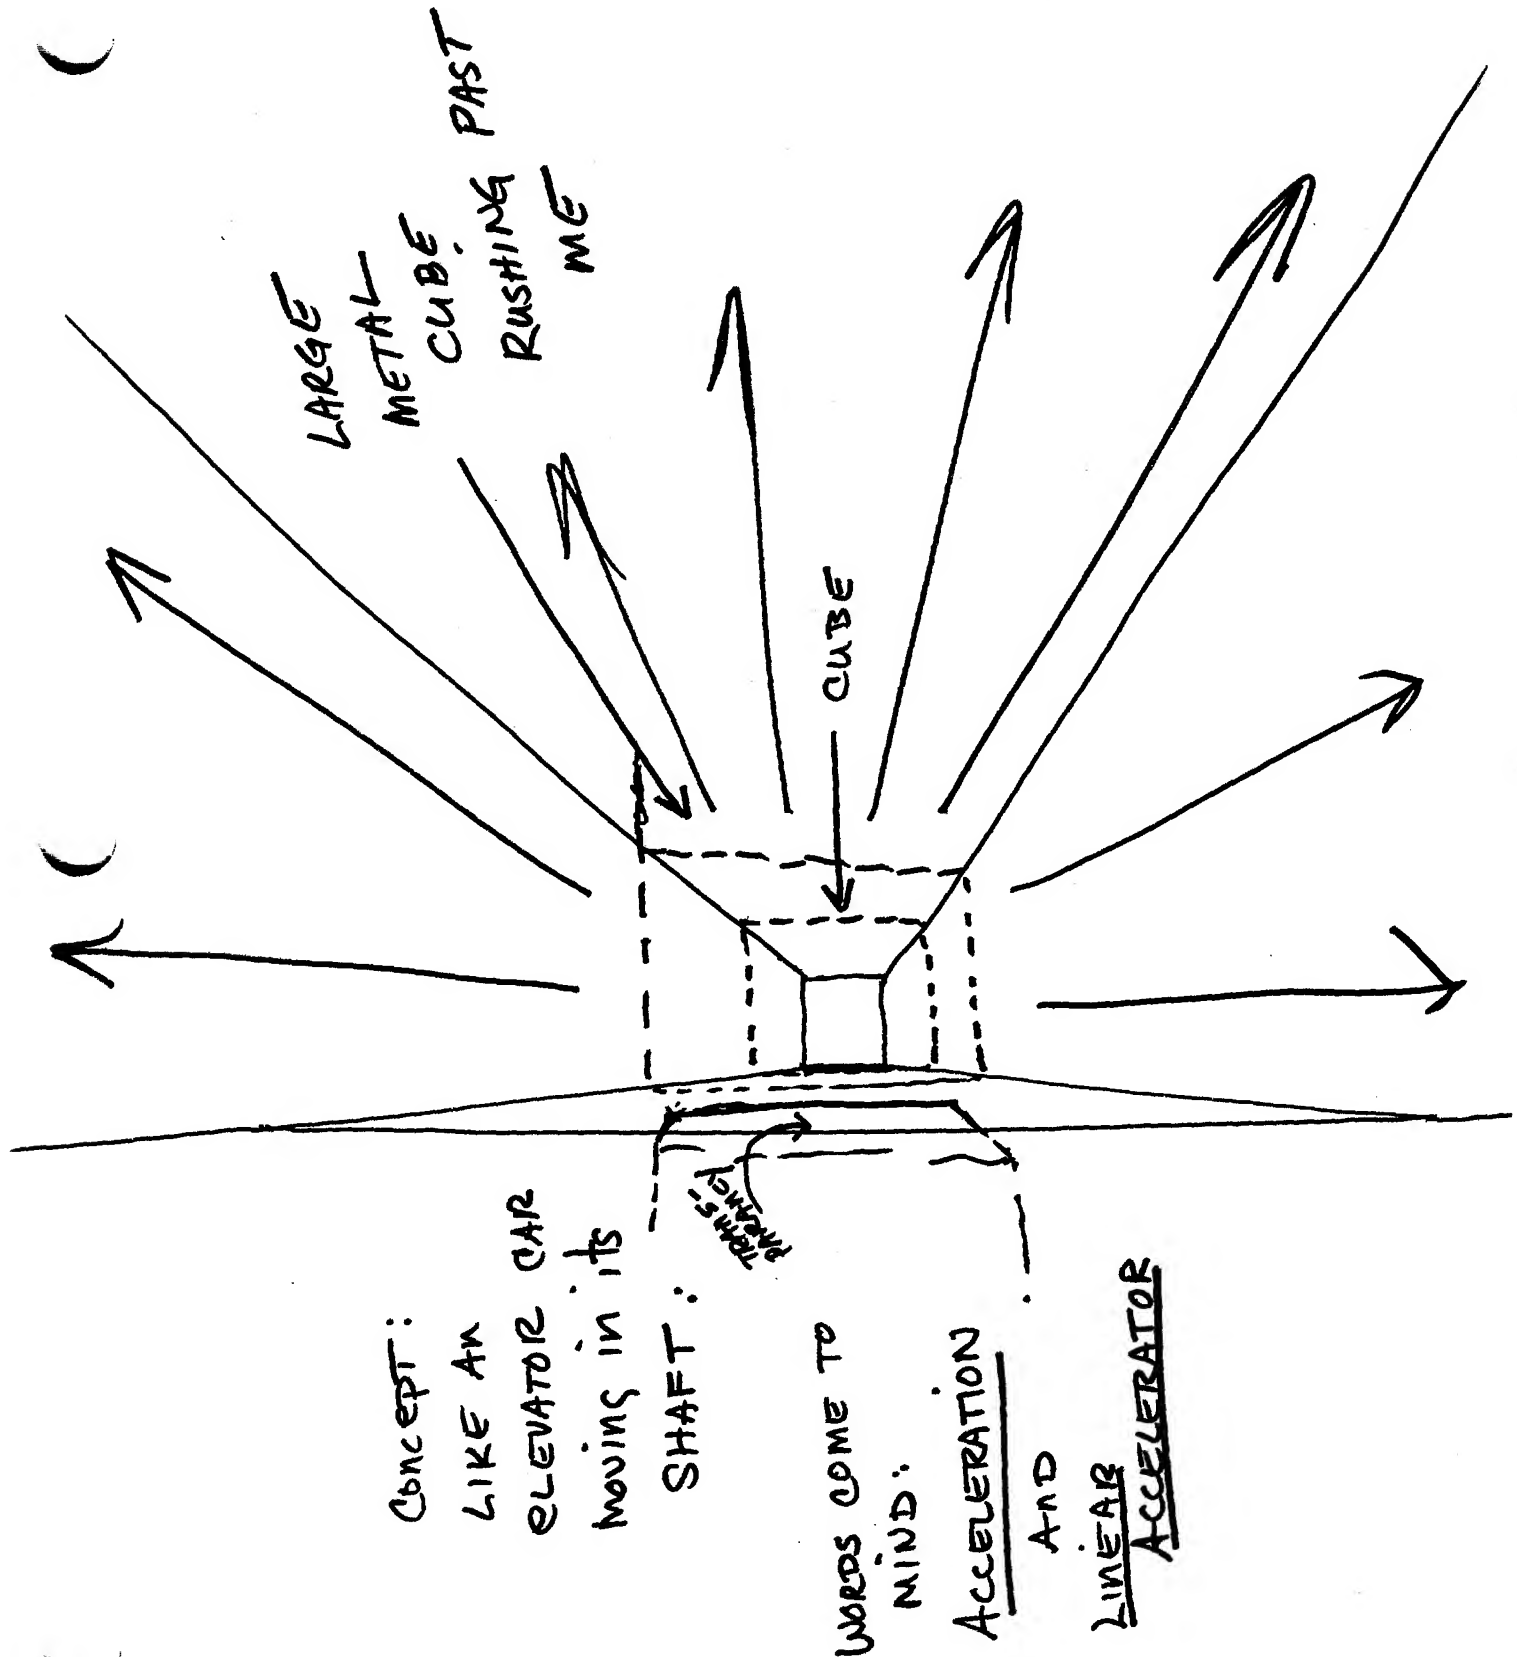 LARGE
METAL
CUBE
RUSHING PAST
ME
CUBE
TRANS-
PARANCY
Concept:
LIKE An
eLEVATOR CAR
moving in its
SHAFT:
WORDS COME TO
MIND:
ACCELERATION
AnD
LinEAR
ACCELERATOR